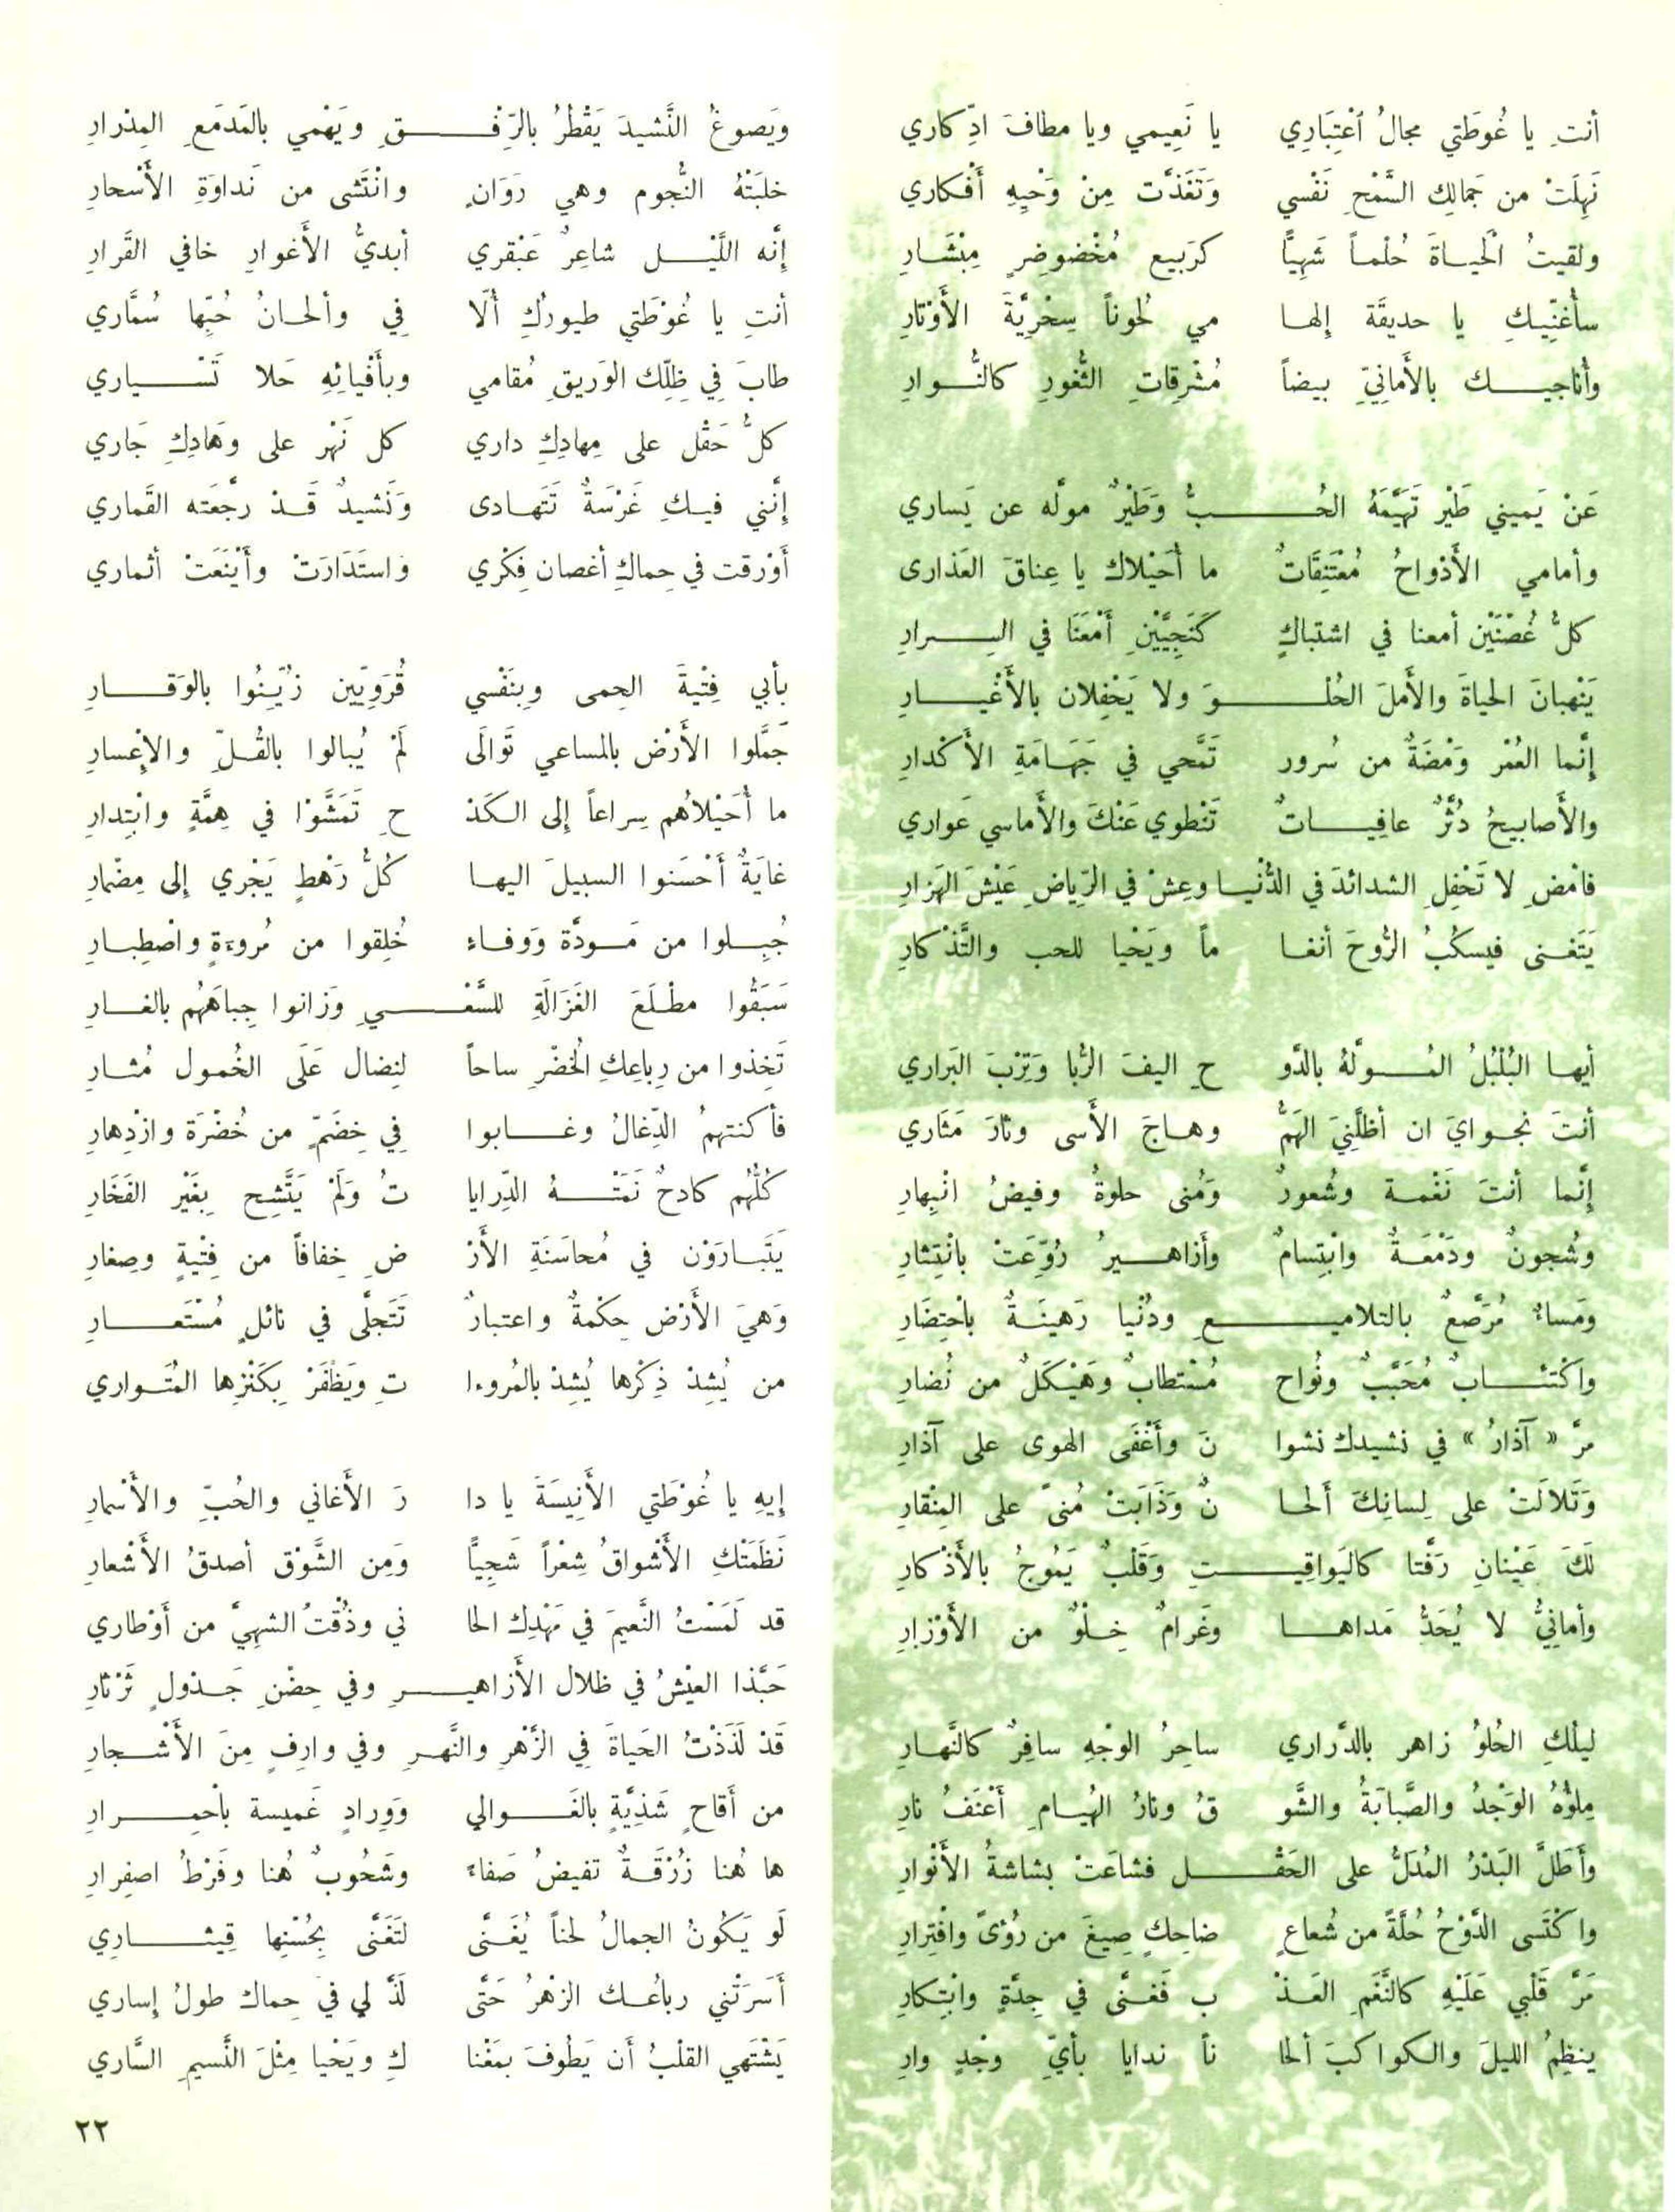 أنتِ يا غُوطَتي مجالُ اُعْتِبَارِي يا نَعِيمي ويا مطافَ ادِّكاري
نَهِلَتْ من جَمالِك السَّمْحِ نَفْسي وَتَغَذَّت مِنْ وَحْيِهِ أَفْكاري
ولقيتُ الْحيـاةَ حُلْمـاً شَهِيَّاً كرَبيع مُخْضوضِرٍ مِبْشَـارِ
سأُغَنِّيـكِ يا حديقَة إلها مي لُحوناً سِحْرِيَّةَ الأَوْتارِ
وأُناجيـــك بالأَمانِيِّ بيضاً مُشْرِقاتِ الثُّغورِ كالنُّـوارِ
عَنْ يَميني طَيْر تَهَيَّمَهُ الحُـــبُّ وَطَيْرٌ مولَّه عن يَساري
وأمامي الأَدْواحُ مُعْتَنِقَاتٌ ما أُحَيْلاك يا عِناقَ العَذارى
كلُّ غُصْنَيْن أمعنا في اشتباكٍ كَنَجِيَّيْنِ أَمْعَنَا في السِــرارِ
يَنْهبانَ الحياةَ والأَملَ الحُلْـــوَ ولا يَحْفِلان بالأَغْيـــارِ
إنَّما العُمْر وَمْضَةٌ من سُرور تَمَّحي في جَهَـامَةِ الأَكْدارِ
والأَصابيحُ دُثَّرٌ عافِيـــاتٌ تَنْطوي عَنْكَ والأَماسي عَواري
فامْضِ لا تَحْفِلِ الشدائدَ في الدُّنْيـا وعِشْ في الرِّياضِ عَيْشَ الهَزارِ
يَتَغـنى فيسكُبُ الرُّوحَ أنغـا ماً ويَحْيا للحب والتَّذْكارِ
أيهـا البُلْبُلُ المُــولَّهُ بالدَّو حِ اليفَ الرُّبا وَتِرْبَ البَراري
أنتَ نجـوايَ ان أظلَّنِيَ الهَمُّ وهـاجَ الأَسى وثارَ مَثَاري
إنَّما أنتَ نَغْمـة وشُعورٌ وَمُنى حلوةٌ وفيضُ انْبِهارِ
وشُجونٌ ودَمْعَـةٌ وابْتِسامٌ وأَزاهـيرُ رُوِّعَتْ بانْتِثارِ
وَمَساءٌ مُرَصَّعٌ بالتلاميـــعِ ودُنْيا رَهينَـةٌ باحْتِضَارِ
واكْتئــابٌ مُحَبَّبٌ ونُواح مُسْتطابٌ وهَيْكَلٌ من نُضارِ
مرَّ « آذارُ » في نشيدك نشوا نَ وأَغْفَى الهوى على آذارِ
وَتَلالَتْ على لِسانِكَ أَلحا نٌ وَذَابَتْ مُنىً على المِنْقارِ
لَكَ عَيْنانِ رَفَّتا كاليَواقيـــتِ وَقَلْبٌ يَمُوجُ بالأَذْكارِ
وأمانِيُّ لا يُحَدُّ مَداهـــا وغَرامٌ خِـلْوٌ من الأَوْزارِ
ليلُكِ الحُلوُ زاهر بالدَّراري ساحِرُ الوْجْهِ سافِرٌ كالنَّهـارِ
مِلؤُهُ الوَجْدُ والصَّبابَةُ والشَّو قُ ونارُ الهُيـامِ أَعْنَفُ نارِ
وأَطَلَّ البَدْرُ المُدَلُّ على الحَقْــل فشاعَتْ بشاشةُ الأَنْوارِ
واكْتَسى الدَّوْحُ حُلَّةً من شُعاعٍ ضاحِكٍ صِيغَ من رُؤىً وافْتِرارِ
مَرَّ قَلْبي عَلَيْهِ كالنَّغَمِ العَـذْ ب فَغنَّى في جِدَّةٍ وابْتِكارِ
ينظِمُ الليلَ والكواكبَ ألحا ناً ندايا بأيِّ وجْدٍ وارِ
ويَصوغُ النَّشيدَ يَقْطُرُ بالرِّفـــقِ ويَهْمي بالمَدمَعِ المِدْرارِ
خلبَتْهُ النُّجوم وهي رَوَانٍ وانْتَشى من نَداوَةِ الأَسْحارِ
إنَّه اللَّيْــل شاعِرٌ عَبْقري أبديُّ الأَغوارِ خافي القَرارِ
أنتِ يا غُوْطَتِي طيورُكِ أُلّا فِي وألحـانُ حُبِّها سُمَّاري
طابَ فِي ظِلِّك الوَريقِ مُقامي وبأَفْيائِهِ حَلا تَسْـــياري
كلُّ حَقْل على مِهادِكِ داري كل نَهْر على وَهَادِكِ جَاري
إنَّني فيـكِ غَرْسَةٌ تَتَهـادى وَنَشيدٌ قَـدْ رجَّعَته القَماري
أَوْرقت في حِماكِ أغصان فِكْري واستَدَارَتْ وأَيْنَعَتْ أثماري
بأبي فِتْيةَ الحِمى وبِنَفْسي قُرَوِيِّين زُيِّنُوا بالوَقـــارِ
جَمَّلوا الأَرْض بالمساعي تَوالَى لَمْ يُبالوا بالقُـلِّ والإِعْسارِ
ما أُحَيْلاهُم سِراعاً إلى الكَدْ حِ تَمَشَّوْا في هِمَّةٍ وابْتِدارِ
غايَةٌ أَحْسَنوا السبيلَ اليهـا كُلُّ رَهْطٍ يَجْري إلى مِضْمارِ
جُبِـلوا من مَـودَّة وَوفـاء خُلِقوا من مُروءَةٍ واصْطِبـارِ
سَبَقُوا مطْـلَعَ الغَزَالَةِ للسَّعْـــيِ وَزانوا جِباهَهُم بالغـارِ
تَخِذوا من رِباعِكِ الْخضْرِ ساحاً لنِضال عَلَى الخُمول مُثـارِ
فأكنتهمُ الدِّغالُ وغــابوا فِي خِضَمٍّ من خُضْرَة وازْدِهارِ
كُلُّهُم كادحٌ نَمَتْـــهُ الدِّرايا تُ وَلَمْ يَتَّشِح بِغَيْر الفَخَارِ
يَتَبـارَوْن في مُحاسَنَةِ الأَرْ ضِ خِفافاً من فِتْيةٍ وصِغارِ
وَهيَ الأَرْض حِكْمةٌ واعتبارٌ تَتَجلَّى في نائلٍ مُسْتَعـــارِ
من يُشِدْ ذِكْرها يُشِدْ بالمُروءا تِ وَيَظْفَرْ بِكَنْزِها المُتَـواري
إيهِ يا غُوْطَتي الأَنِيسَةَ يا دا رَ الأَغاني والحُبِّ والأَسْمارِ
نَظَمَتْكِ الأَشْواقُ شِعْراً شَجِيَّاً وَمِن الشَّوْق أصدقُ الأَشْعارِ
قد لَمَسْتُ النَّعيمَ في مَهْدِك الحا ني وذُقْتُ الشهِيَّ من أوْطاري
حَبَّذا العيْشُ في ظلال الأَزاهيـــرِ وفي حِضْنِ جَـدْولٍ ثَرْثارِ
قَدْ لَذَذْتُ الحَياةَ فِي الزَّهْرِ والنَّهـرِ وفي وارِفٍ مِنَ الأَشْـجارِ
من أَقاحٍ شَذِيَّةٍ بالغَــوالي وَوِرادٍ غَميسة بأحْمِــرارِ
ها هُنا زُرْقَـةٌ تفيضُ صَفاءً وشَحُوبٌ هُنا وفَرْطُ اصفِرارِ
لَو يَكُونُ الجمالُ لحناً يُغَنَّى لَتَغَنَّى بِحُسْنِها قِيثـــارِي
أَسَرَتْني رباعُـك الزهْرُ حَتَّى لَذَّ لي في حِماك طولُ إساري
يَشْتَهي القلْبُ أن يَطُوفَ بمَغْنا كِ ويَحْيا مِثْلَ النَّسيمِ السَّاري
٢٢